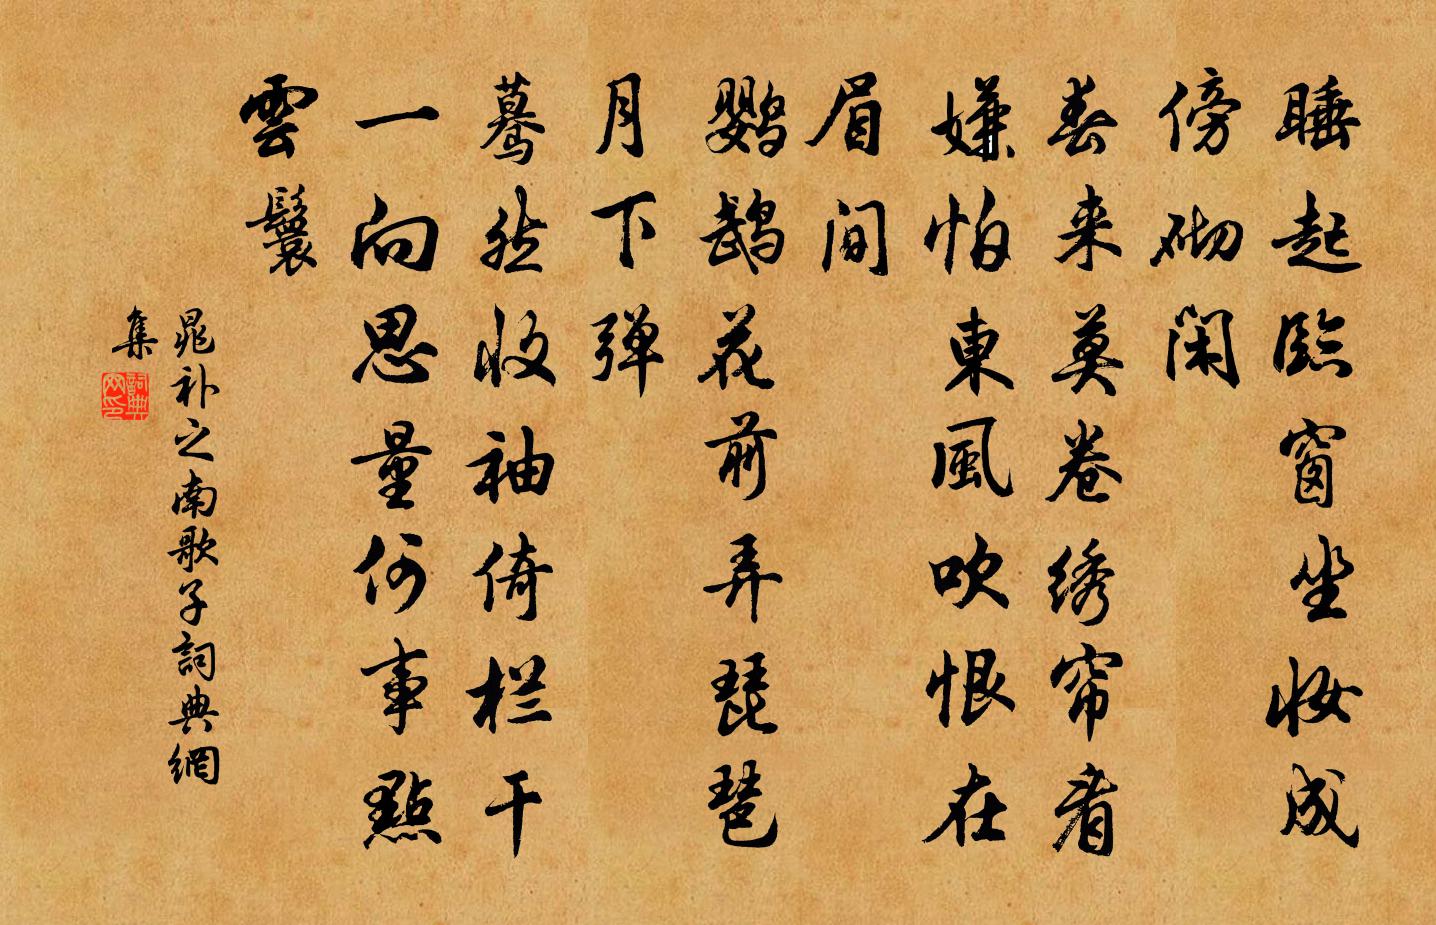 睡起臨窗坐妝成
傍砌闲
春来莫卷绣帘看
嫌怕東風吹恨在
眉间
鹦鹉花前弄琵琶
月下弹
蓦然收袖倚栏干
一向思量何事點
雲鬟
晁补之南歌子詞典網
集
詞典
网印